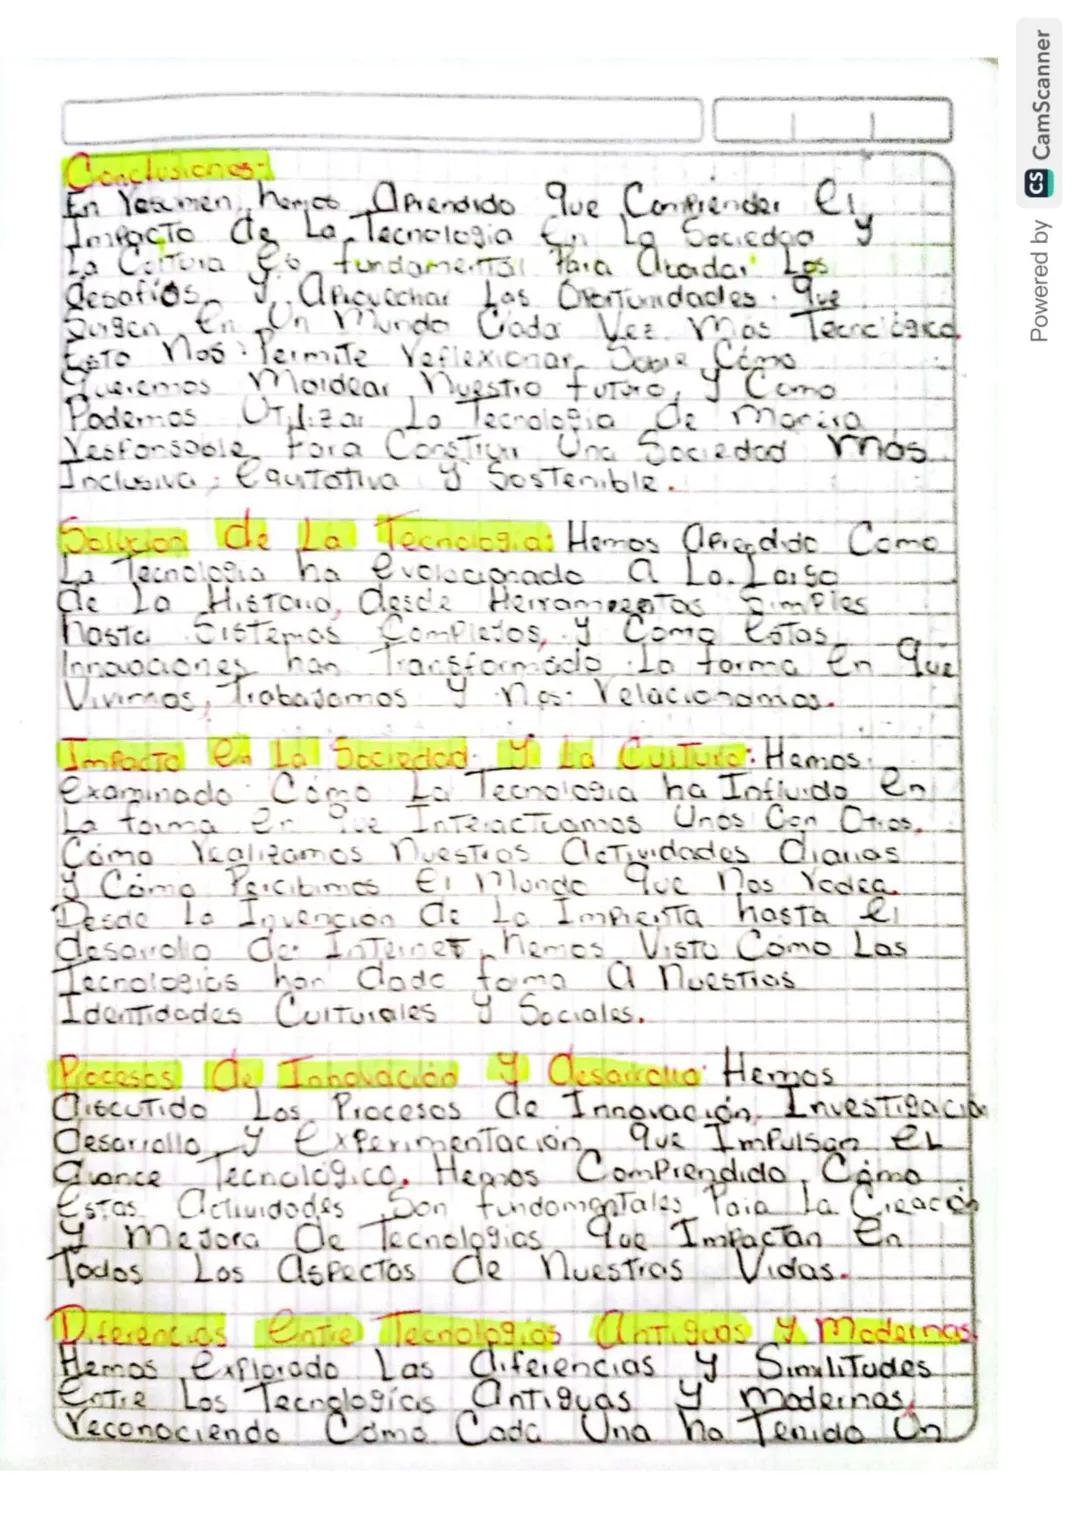 Conclusiones:
En resumen, hemos aprendido que comprender el
Impacto de La Tecnologia En La Sociedad y
La Cultura es fundamental Para abordar Los
desafíos y aprovechar Las Oportunidades que
Surgen en Un Mundo Cada Vez mas Tecnologico.
Esto nos Permite reflexionar Sobre Cómo
queremos Moldear nuestro futuro, y Como
Podemos Utilizar La Tecnologia de manera
responsable Para Construir Una Sociedad mas
Inclusiva, equitativa y Sostenible.
de La Tecnologia: Hemos aprendido Como
La Tecnologia ha evolucionado a Lo Largo
de La Historia, desde Herramientas Simples
hasta Sistemas Complejos, y Como estas
Innovaciones han Transformado La forma en que
Vivimos, Trabajamos y nos relacionamos.
Impacto en La Sociedad y La Cultura: Hemos
examinado Cómo La Tecnologia ha Influido en
La forma en que Interactuamos Unos Con Otros,
Cómo realizamos nuestras actividades diarias
y Cómo Percibimos El Mundo que nos rodea.
Desde La Invención de La Imprenta hasta el
desarrollo de Internet, hemos Visto Como Las
Tecnologias han dado forma a nuestras
Identidades Culturales y Sociales.
Procesos de Innovación y desarrollo: Hemos
discutido Los Procesos de Innovación, Investigación
desarrollo y experimentación que Impulsan el
avance Tecnológico. Hemos Comprendido Cómo
Estas actividades Son fundamentales Para La Creación
y mejora de Tecnologias que Impactan en
Todos Los aspectos de nuestras Vidas.
Diferencias entre Tecnologías antiguas y modernas
Hemos explorado Las diferencias y Similitudes
entre Los Tecnologías antiguas y modernas,
reconociendo Cómo Cada Una ha Tenido Un
Powered by CS CamScanner